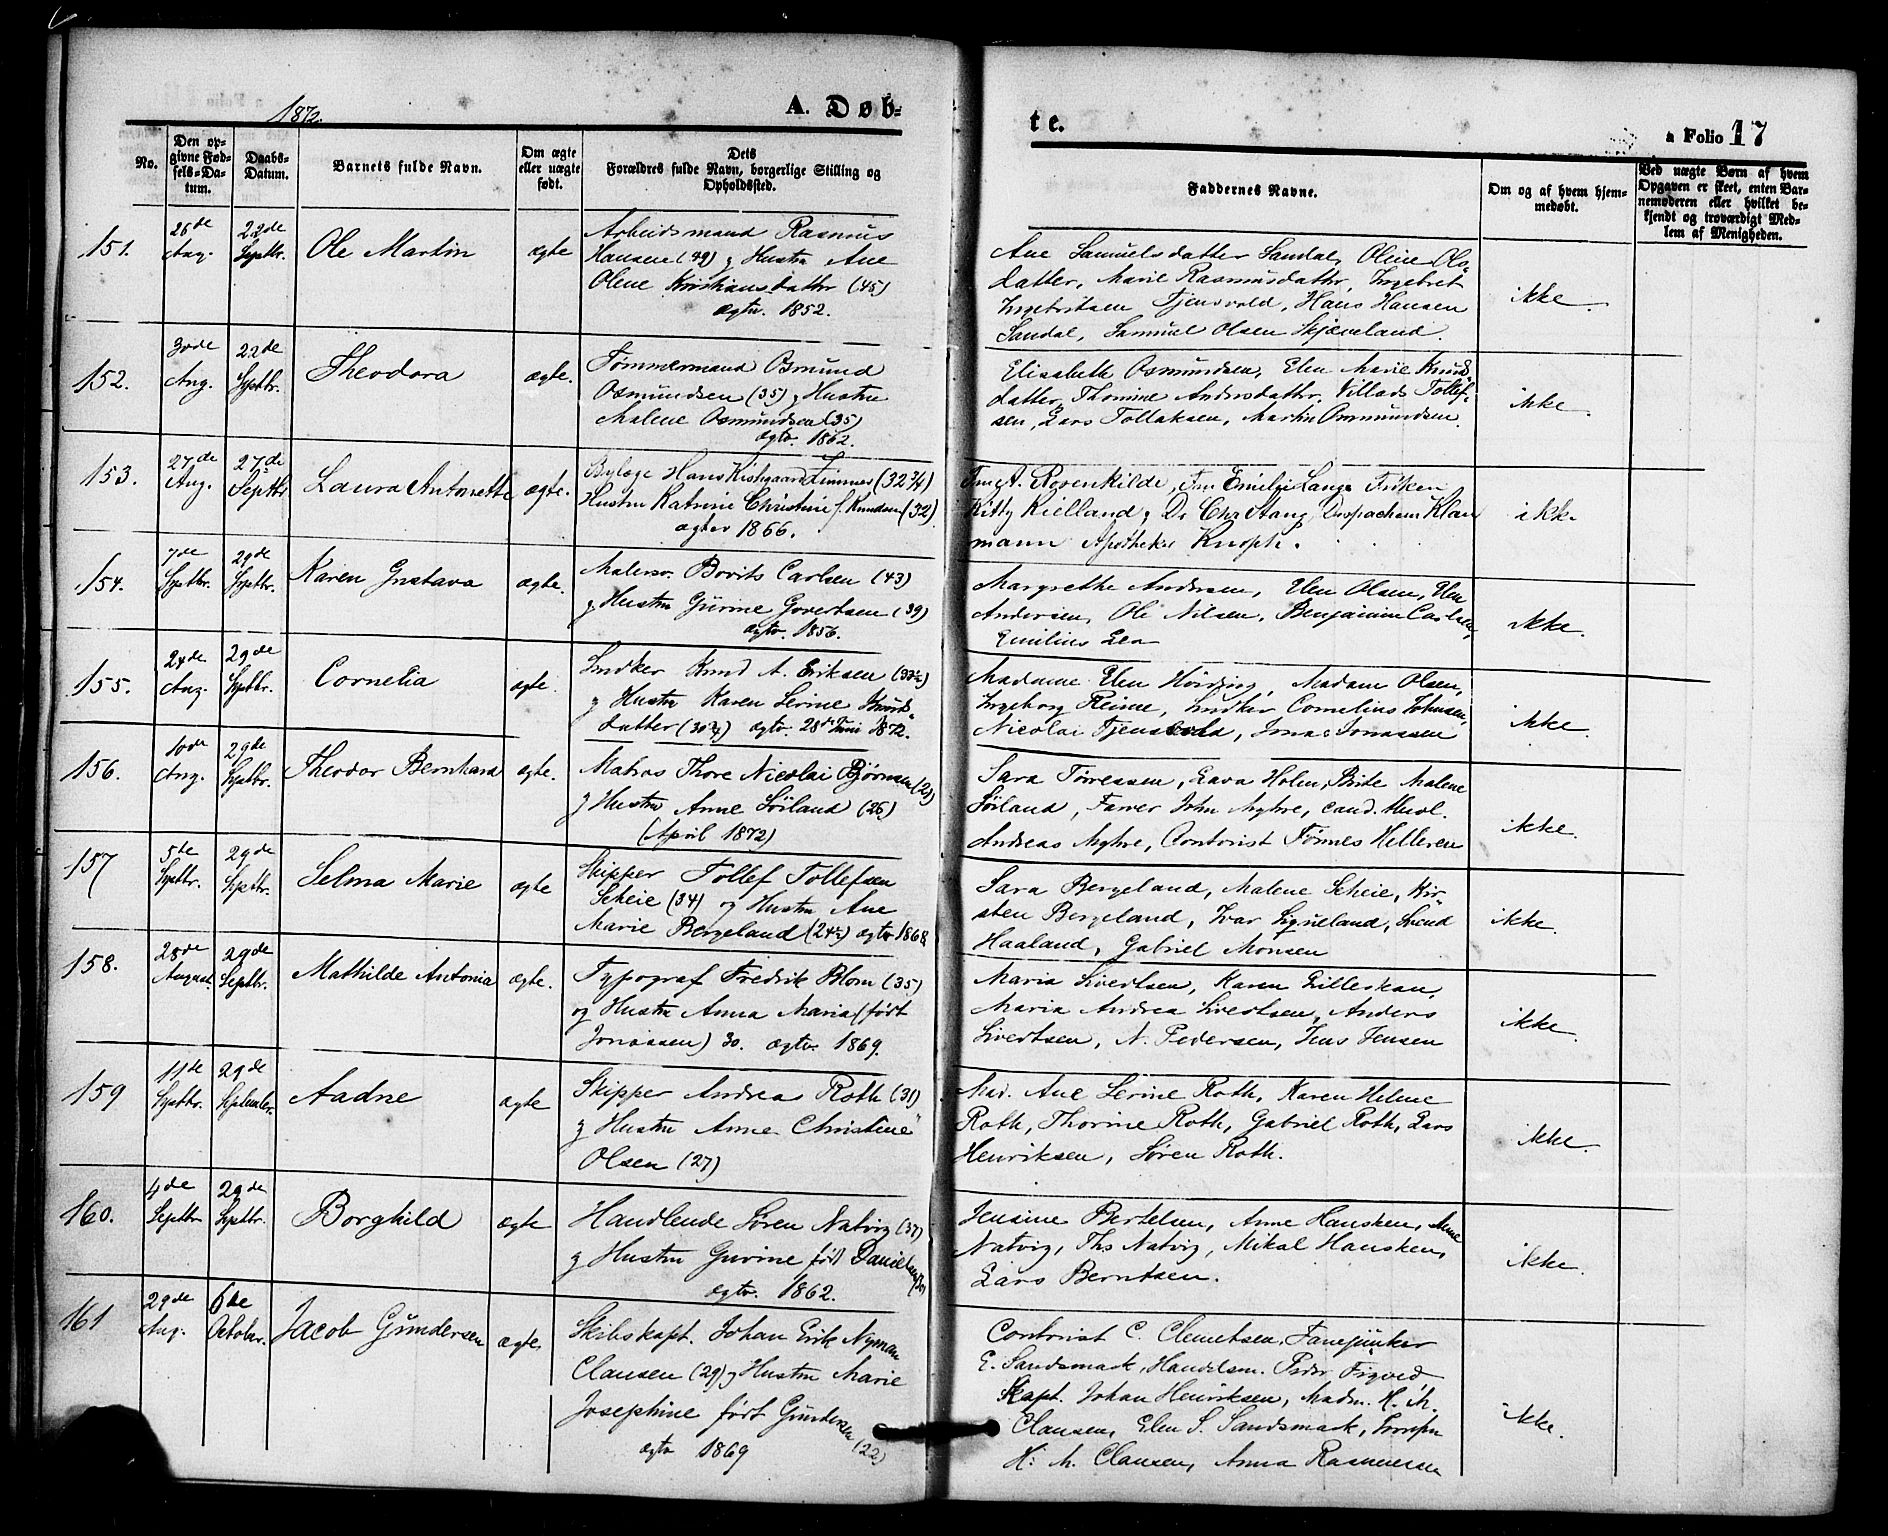 1872.
A. Døb-
te.
a Folio 17
No.
Den op-
givne Fød-
sels-Da-
tum.
Daabs-
Datum.
Barnets fulde Navn.
Om ægte
eller uægte
født.
Dets
Forældres fulde Navn, borgerlige Stilling og
Opholdssted.
Faddernes Navne.
Om og af hvem hjem-
medøbt.
Ved uægte Børn af hvem
Opgaven er skeet, enten Bar-
nemoderen eller hvilket be-
kjendt og troværdigt Med-
lem af Menigheden.
151.
26de
Aug.
22de
Septbr.
Ole Martin
ægte
Arbeidsmand Rasmus
Hansen (49) og Hustru Ane
Olene Kristiansdatter (45)
ægtev. 1852.
Ane Samuelsdatter Sandal, Oline Ols-
datter, Marie Rasmusdatter, Ingebret
Ingebritsen Tjensvold, Hans Hansen
Sandal, Samuel Olsen Skjæveland.
ikke.
152.
30de
Aug.
22de
Septbr.
Theodora
ægte.
Tømmermand Osmund
Osmundsen (35) og Hustru
Malene Osmundsen (35)
ægtv. 1862.
Elisabeth Osmundsen, Elen Marie Knuds-
datter, Thomine Andersdatter, Villads Tollef-
sen, Lars Tollaksen, Martin Osmundsen.
ikke.
153.
27de
Aug.
27de
Septbr
Laura Antonette
ægte.
Bylæge Hans Zimmer (32 3/4)
Hustru Katrine Christine f. Knudsen (32)
ægtev 1866.
Rosenkilde, Fru Emilie Lange Frøken
Kitty Kielland, Dr Chr Stang, Dispacheur Klau
mann Apotheker Knoph.
ikke
154.
7de
Septbr.
29de
Septbr.
Karen Gustava
ægte.
Malersv. Borits Carlsen (43)
og Hustru Gurine Govertsen (39)
ægtv. 1856.
Margrethe Andersen, Elen Olsen, Elen
Andersen, Ole Nilsen, Benjamin Carlsen,
Emilius Lea
ikke.
155.
24de
Aug.
29de
Septbr.
Cornelia
ægte.
Snedker Knud A. Eriksen
og Hustru Karen Serine Knuds-
datter ægtv. 28de Juni 1872.
Madame Elen Høiding, Madam Olsen,
Ingeborg Reime, Snedker Cornelius Johnsen,
Nicolai Tjensvold, Jonas Jonassen
ikke.
156.
10de
Aug.
29de
Septbr.
Theodor Bernhard
ægte.
Matros Thore Nicolai Bjørnsen
og Hustru Anne Søiland (26)
(April 1872)
Sara Tørressen, Lava Holm, Brite Malene
Søiland, Farver John Myhre, cand. theol.
Andreas Myhre, Contorist Tønnes Helleren
ikke.
157
5te
Septbr.
29de
Septbr.
Selma Marie
ægte
Skipper Tollef Tollefsen
Scheie (34) og Hustru Ane
Marie Bergeland ægtv 1868
Sara Bergeland, Malene Scheie, Kir-
sten Bergeland, Ivar Sigveland, Svend
Haaland, Gabriel Monsen
ikke.
158.
28de
August.
29de
Septbr.
Mathilde Antonia
ægte.
Typograf Fredrik Blom (35)
og Hustru Anna Maria (født
Jonassen) 30. ægtv. 1869.
Maria Sivertsen, Karen
Maria Andrea Sivertsen, Anders
Sivertsen, N. Pedersen, Jens Jensen
ikke.
159
11te
Septbr.
29de
September.
Aadne
ægte
Skipper Andreas Roth (31)
og Hustru Anne Christine
Olsen (27)
Mad. Ane Serine Roth, Karen Helene
Roth, Thorine Roth, Gabriel Roth, Lars
Henriksen, Søren Roth.
ikke.
160.
4de
Septbr
29de
Septbr.
Borghild
ægte
Handlende Søren Natvig (37)
og Hustru Gurine født Danielsen
ægtv. 1862.
Jensine Bertelsen, Anne Hansken, Anne
Natvig, Ths Natvig, Mikal Hansken,
Lars Berntsen.
ikke.
161
29de
Aug.
6te
Octobr.
Jacob Gundersen
ægte.
Skibskapt. Johan Erik Nyman
Clausen (29) og Hustru Marie
Josephine født Gundersen (22)
ægtv 1869
Contorist C. Clemetsen, Fanejunker
E. Sandsmark, Handelsm. Peder Figved
Kapt. Johan Henriksen, Madm. H. M.
Clausen, Elen S. Sandsmark,
H. M. Clausen, Anna Rasmussen
ikke.